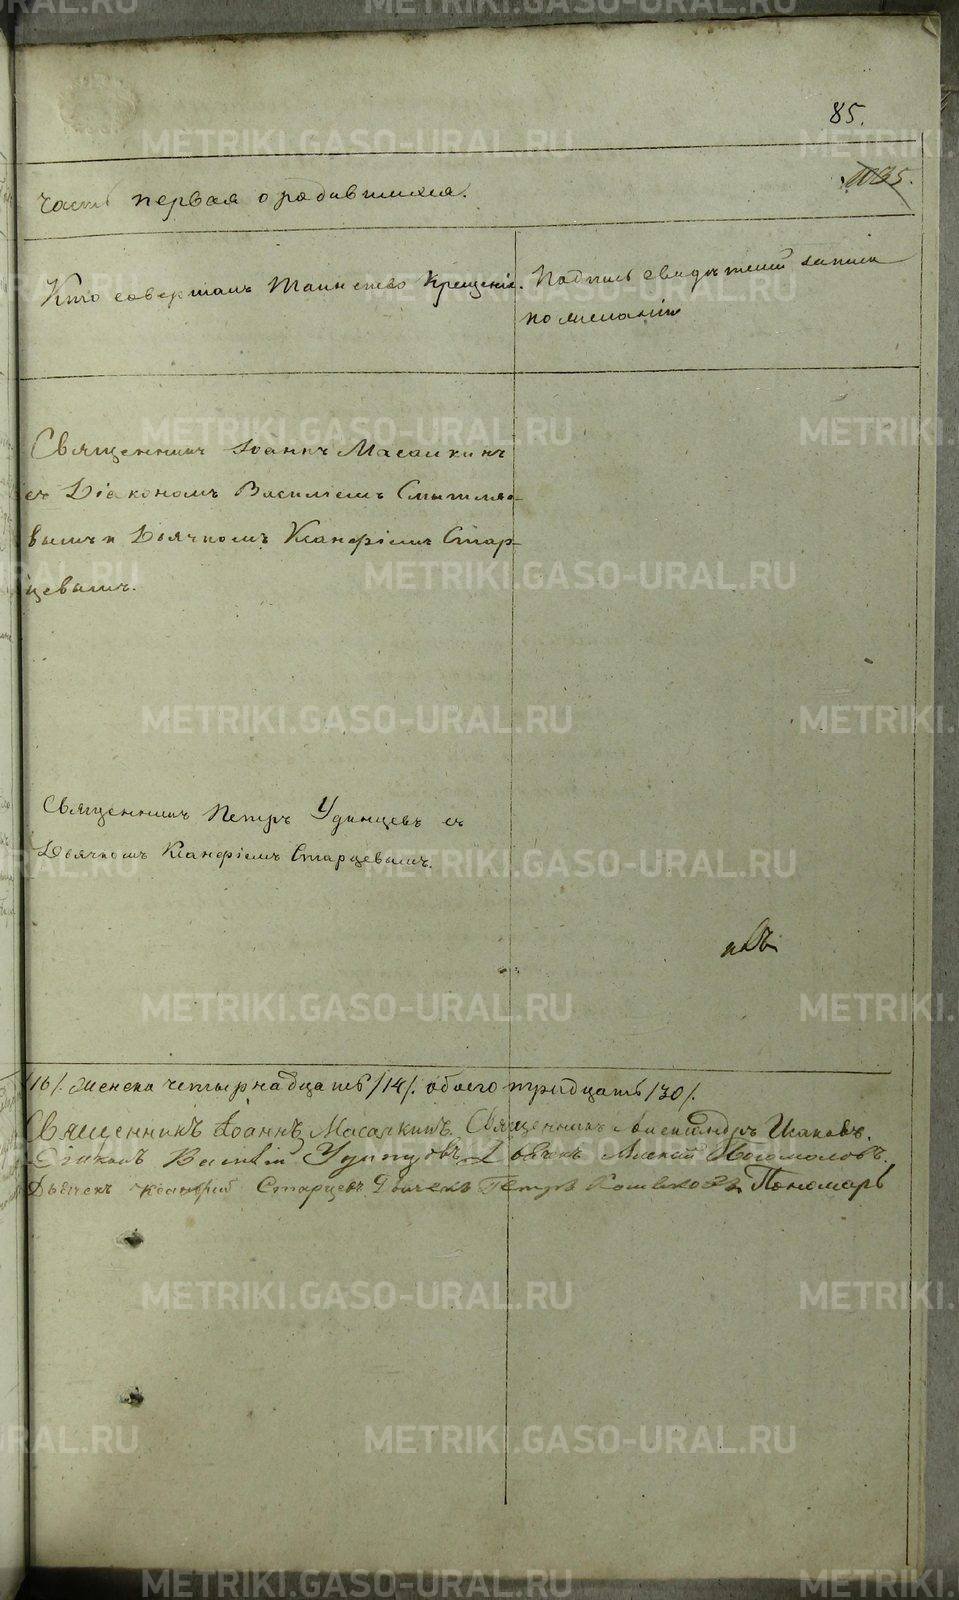 85.
1135.
Часть первая о родившихся.
Кто совершалъ Таинство Крещенія.
Подпись свидѣтелей записи
по желанію
Священникъ Іоаннъ Масалкинъ
съ Діакономъ Василіемъ Смышляе-
вымъ и Дьячкомъ Ксанфіемъ Стар-
цевымъ.
Священникъ Петръ Удинцевъ съ
Дьячкомъ Ксанфіемъ Старцевымъ.
/16/. женска четырнадцать /14/. обоего тридцать /30/.
Священникъ Іоаннъ Масалкинъ. Священникъ Александръ Исаковъ.
Удинцовъ Алексій Богомоловъ.
Дьячекъ Ксанфій Старцевъ Дьячекъ Петръ Пономарь
METRIKI.GASO-URAL.RU